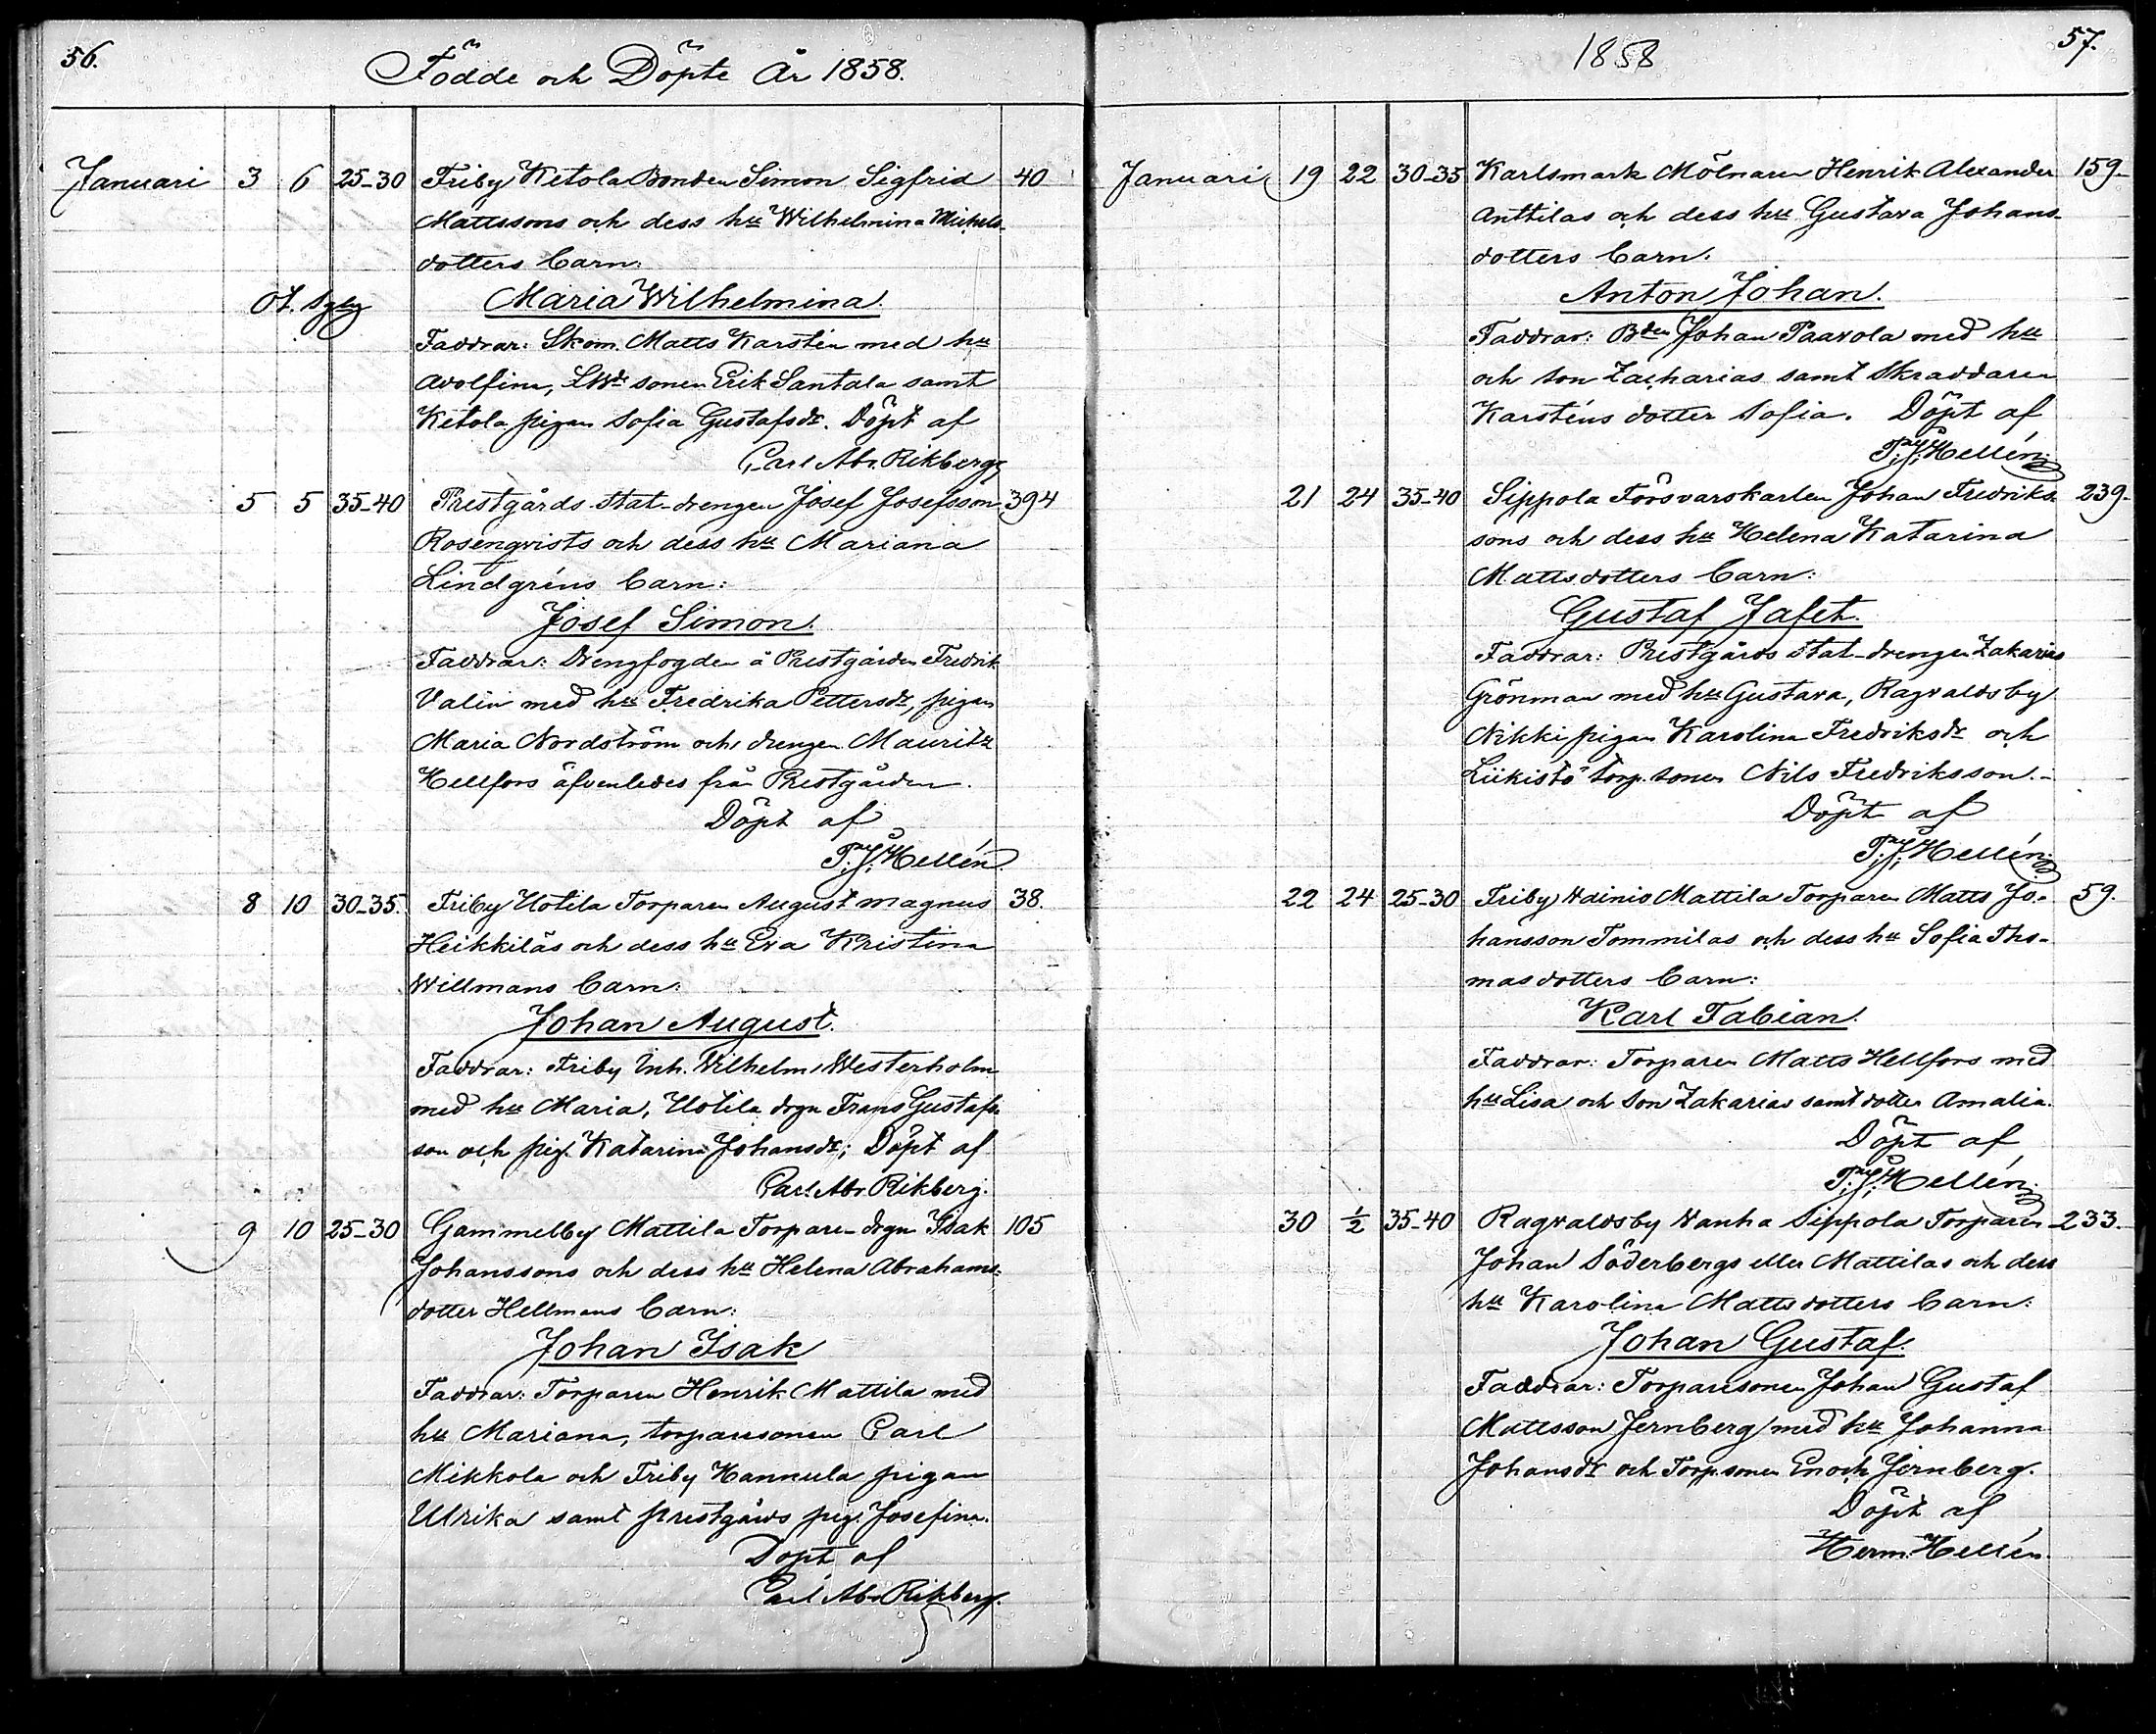 56.
Födde och Döpte År 1858.
Januari 3 6 25-30 Friby Ketola Bonden Simon Sigfrid 40
Mattssons och dess hu Wilhelmina Michels-
dotters barn:
Maria Wilhelmina.
Faddrar: Skom. Matts Karstén med hu
Adolfina, Erik Santala samt
Ketola pigan Sofia Gustafsdr. Döpt af
Carl Abr. Rikberg
5 5 35-40 Prestgårds stat-drengen Josef Josefsson 394
Rosenqvists och dess hu Mariana
Lindgréns barn:
Josef Simon.
Faddrar: Drengfogden å Prestgården Fredrik
Valin med hu Fredrika Pettersdr, pigan
Maria Nordström och drengen Mauritz
Hellfors äfvenledes från Prestgården.
Döpt af
T. J. Hellén
8 10 30-35. Friby Uotila Torparen August Magnus 38.
Heikkiläs och dess hu Eva Kristina
Willmans barn:
Johan August.
Faddrar: Friby Inh. Vilhelm Westerholm
med hu Maria, Uotila drgn Frans Gustafs-
son och pig. Katarina Johansdr; Döpt af
Carl Abr. Rikberg.
9 10 25-30 Gammelby Mattila Torpare-drgn Isak 105
Johanssons och dess hu Helena Abrahams-
dotter Hellmans barn:
Johan Isak
Faddrar: Torparen Henrik Mattila med
hu Mariana, torparesonen Carl
Mikkola och Friby Hannula pigan
Ulrika samt prestgårds pig. Josefina.
Döpt af
Carl Abr. Rikberg.
1858
57.
Januari 19 22 30-35 Karlsmark Mölnaren Henrik Alexander 159-
Anttilas och dess hu Gustava Johans-
dotters barn.
Anton Johan.
Faddrar: Bden Johan Paavola med hu
och son Zacharias samt Skraddaren
Karsténs dotter Sofia. Döpt af
T. J. Hellén
21 24 35-40 Sippola Försvarskarlen Johan Fredriks- 239-
sons och dess hu Helena Katarina
Mattsdotters barn:
Gustaf Jafet.
Faddrar: Prestgårds stat-drengen Zakarias
Grönman med hu Gustava, Ragvaldsby
Nikki pigan Karolina Fredriksdr och
Liikistö torp. sonen Nils Fredriksson.-
Döpt af
T. J. Hellén
22 24 25-30 Friby Wainio Mattila Torparen Matts Jo- 59.
hansson Tommilas och dess hu Sofia Tho-
masdotters barn:
Karl Fabian.
Faddrar: Torparen Matts Hellfors med
hu Lisa och son Zakarias samt dotter Amalia.
Döpt af
T. J. Hellén
30 1/2 35-40 Ragvaldsby Wanha Sippola Torparen 233.
Johan Söderbergs eller Mattilas och dess
hu Karolina Mattsdotters barn:
Johan Gustaf.
Faddrar: Torparesonen Johan Gustaf
Mattsson Jernberg med hu Johanna
Johansdr och Torp. sonen Enoch Jernberg.
Döpt af
Herm. Hellén.